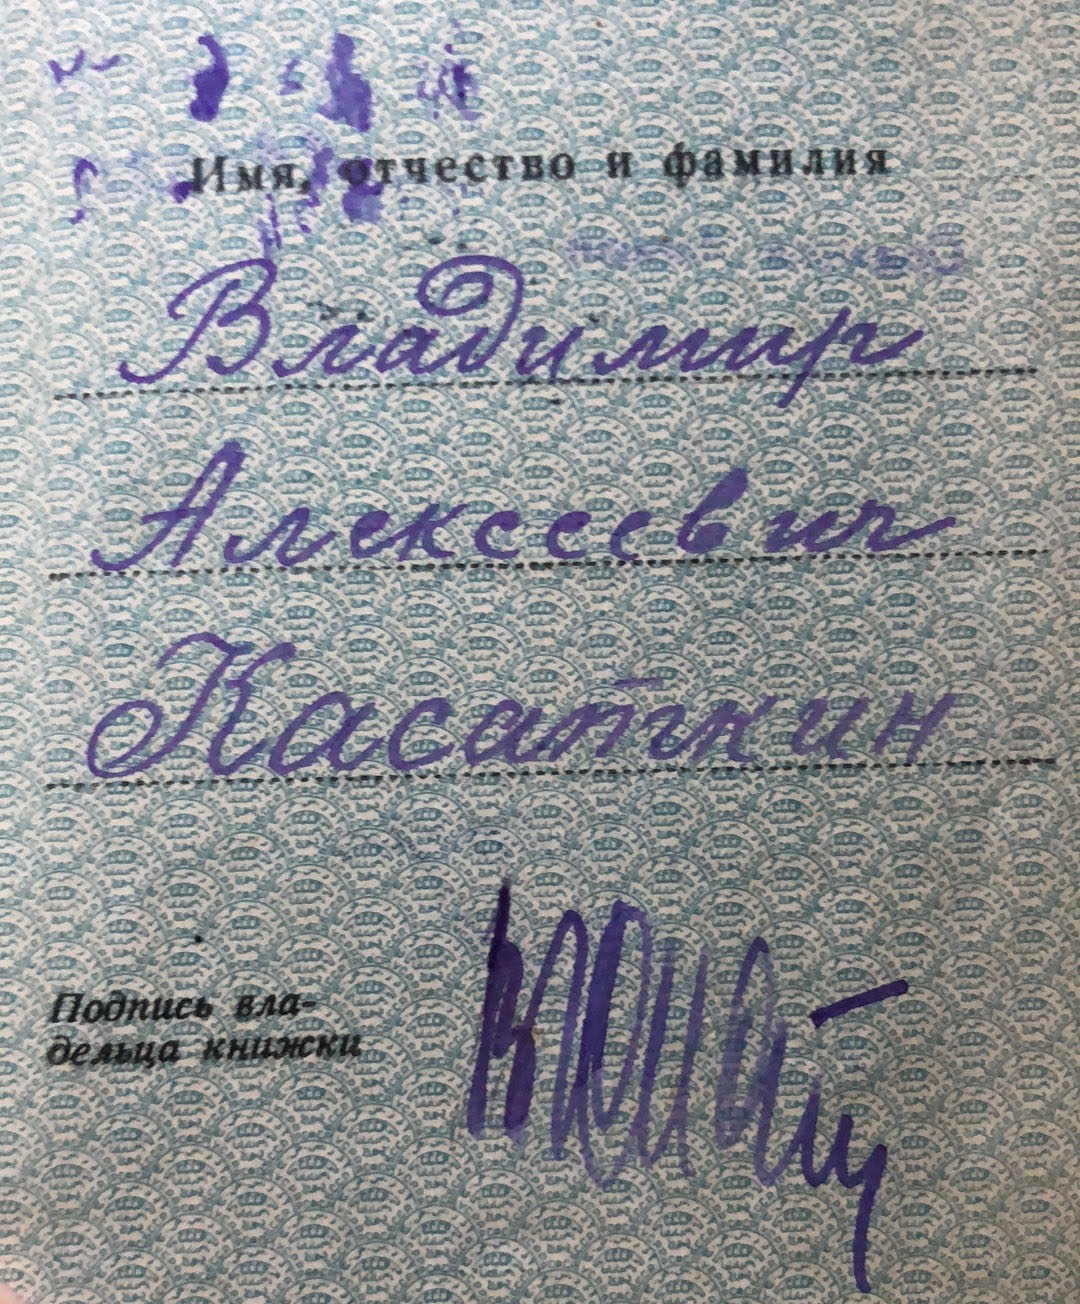 Имя, отчество и фамилия
Владимир
Алексеевич
Касаткин
Подпись вла-
дельца книжки